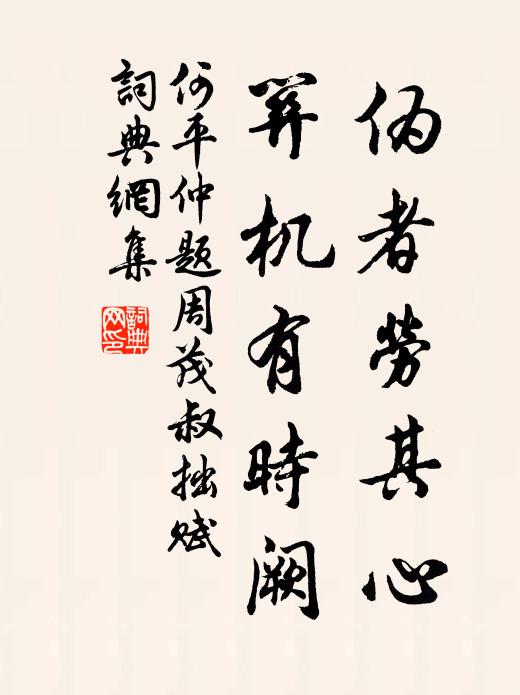 伪者勞其心
关机有時阙
何平仲题周茂叔拙赋
詞典網集
詞典网印